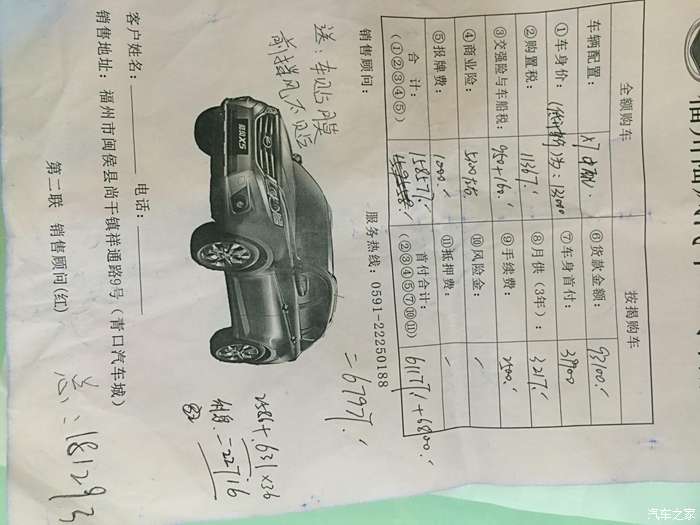 全额购车 按揭购车
车辆配置： X7 中配 ⑥贷款金额： 93100.
①车身价： ⑦车身首付： 39900
②购置税： 11367. ⑧月供（3年）： 3217.
③交强险与车船税： 950+160. ⑨手续费： 2500.
④商业险： 5200左右 ⑩风险金： /
⑤报牌费： 1000. ⑪抵押费： /
合 计： 首付合计：
（①②③④⑤） （②③④⑤⑦⑩⑪） 61177+6800.
销售顾问： 服务热线：0591-22250188
=67977.
送：车身贴膜
前挡风不贴
景逸X5
2586+631×36
利息=22716
客户姓名： 电话：
销售地址：福州市闽侯县尚干镇祥通路9号（青口汽车城）
第二联 销售顾问(红)
总：181293
汽车之家